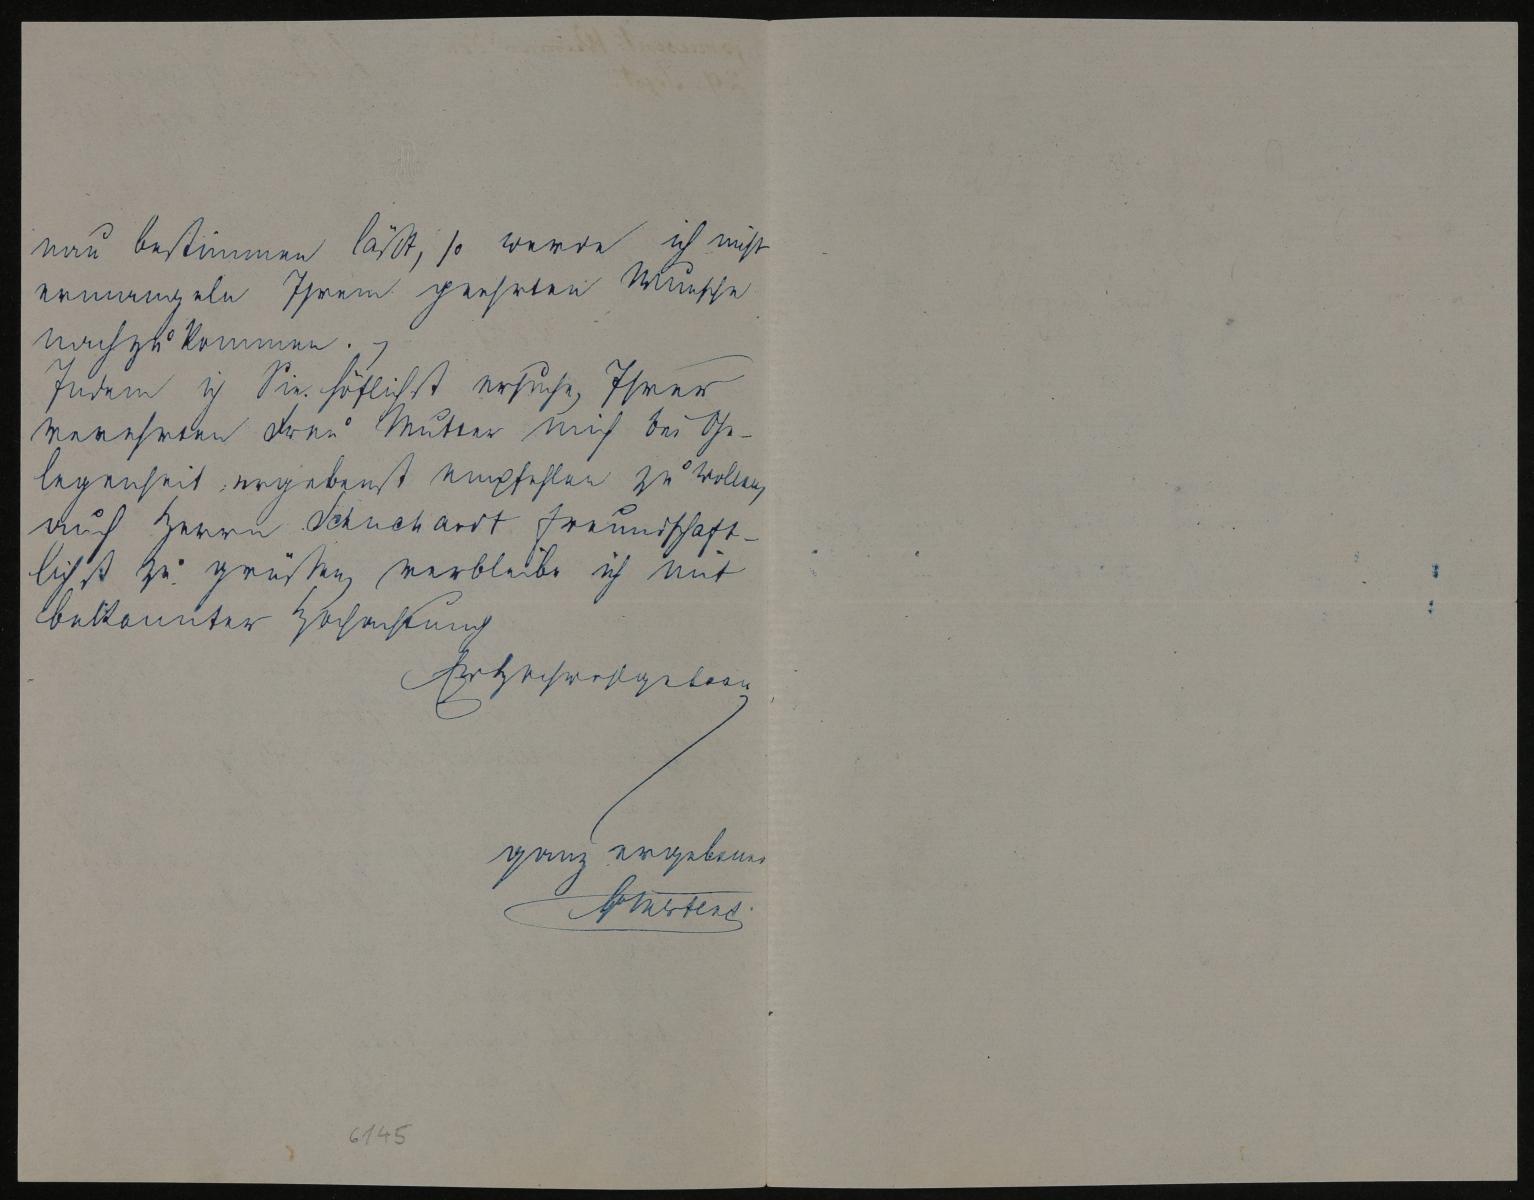 nau bestimmen läßt, so werde ich nicht
ermangeln Ihrem geehrten Wunsche
nachzukommen.
Indem ich Sie höflichst ersuche, Ihrer
verehrten Frau Mutter mich bei Ge-
legenheit ergebenst empfehlen zu wollen,
auch Herrn Schuchardt freundschaft-
lichst zu grüßen, verbleibe ich mit
bekannter Hochachtung
Ew Hochwohlgeboren
ganz ergebener
Mertens
6145